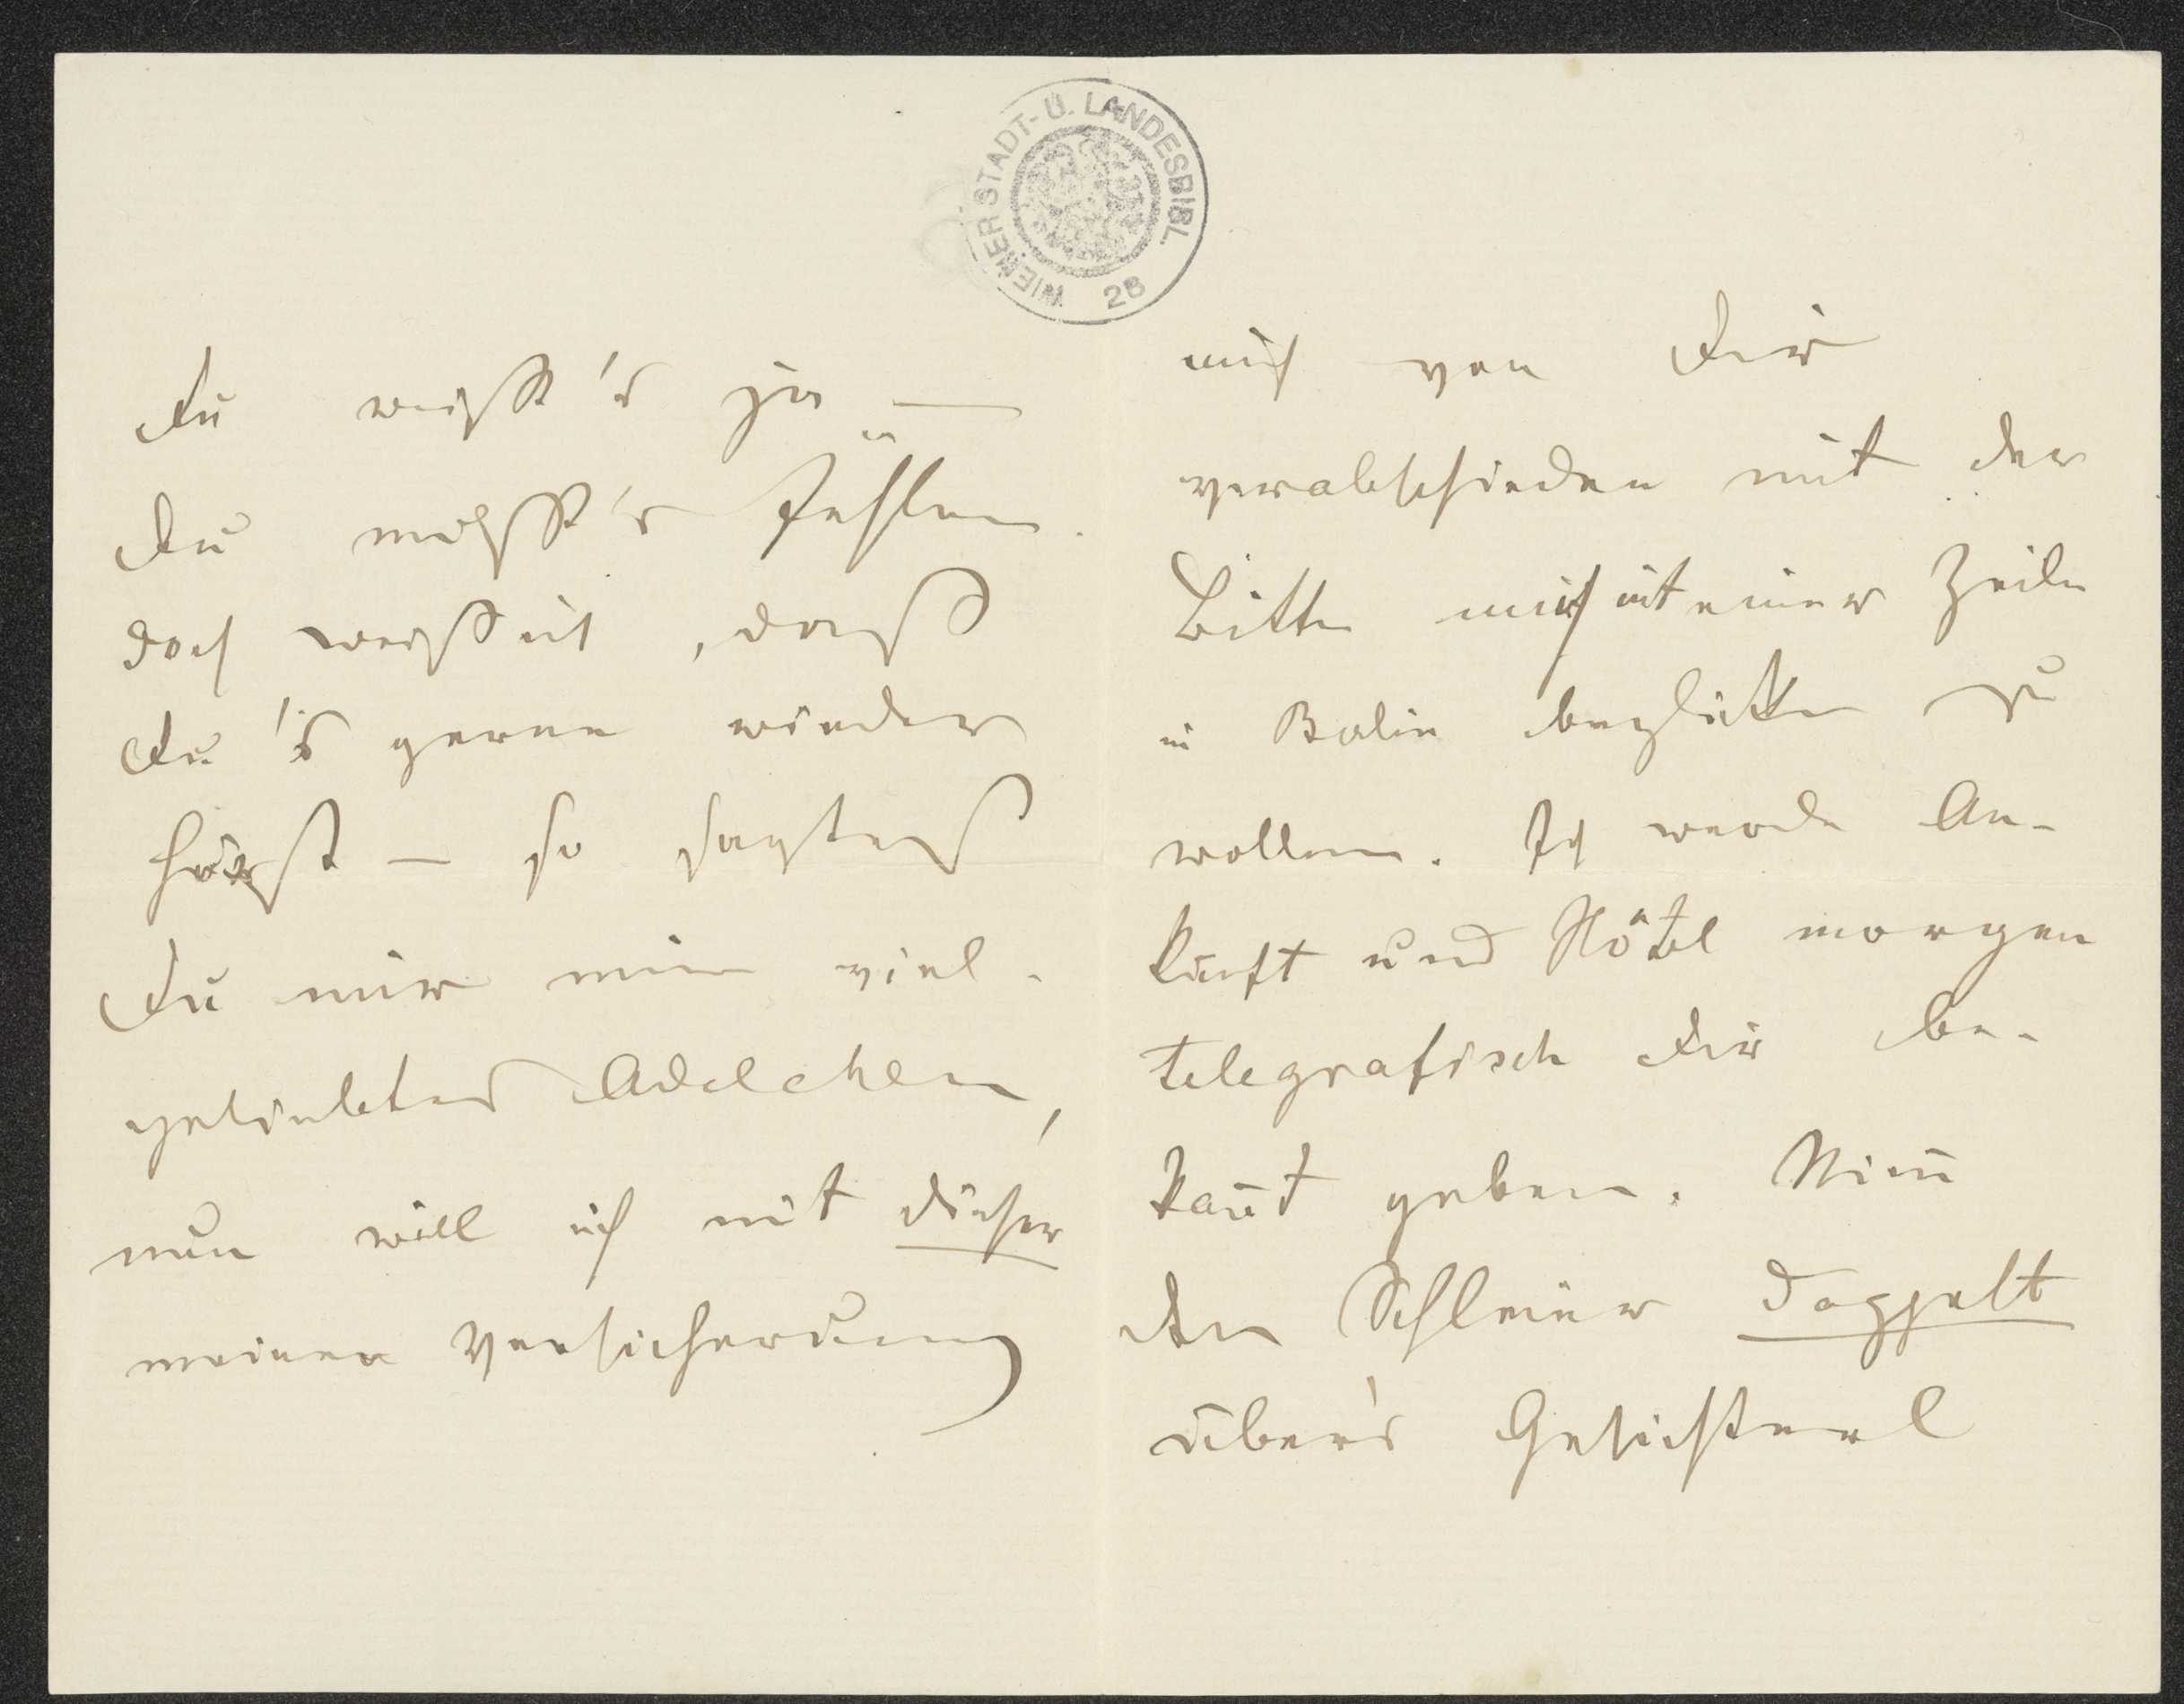 WIENER STADT- U. LANDESBIBL. 28
Du weißt's ja —
Du mußt's fühlen.
doch weiß ich, daß
Du 's gerne wieder
hörst — so sagtest
Du mir mein viel-
geliebtes Adelchen,
nun will ich mit dieser
meiner Versicherung
mich von Dir
verabschieden mit der
Bitte mich mit einer Zeile
in Berlin beglücken zu
wollen. Ich werde An-
kunft und Hôtel morgen
telegrafisch Dir be-
kan̄t geben. Nim̄
den Schleier doppelt
über's Gesichterl